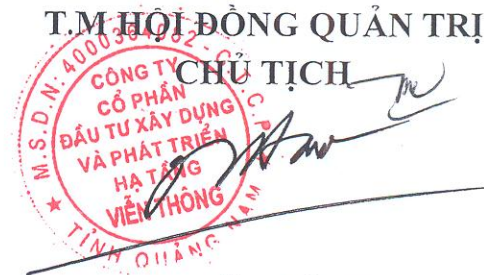 T.M HỘI ĐỒNG QUẢN TRỊ
CHỦ TỊCH
CÔNG TY
CỔ PHẦN
ĐẦU TƯ XÂY DỰNG
VÀ PHÁT TRIỂN
HẠ TẦNG
VIỄN THÔNG
★ TỈNH QUẢNG NAM